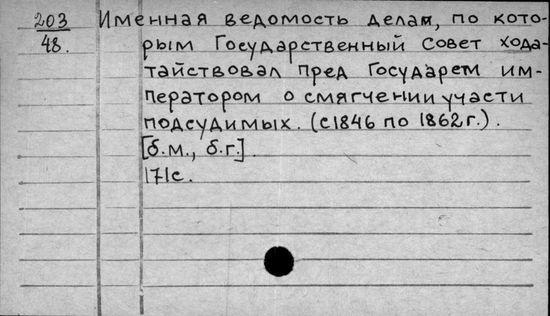 203
48.
Именная ведомость делам, по кото-
рым Государственный Совет хода-
тайствовал пред Государем им-
ператором о смягчении участи
подсудимых. (с 1846 по 1862 г.).
[б.м., б.г.].
171с.